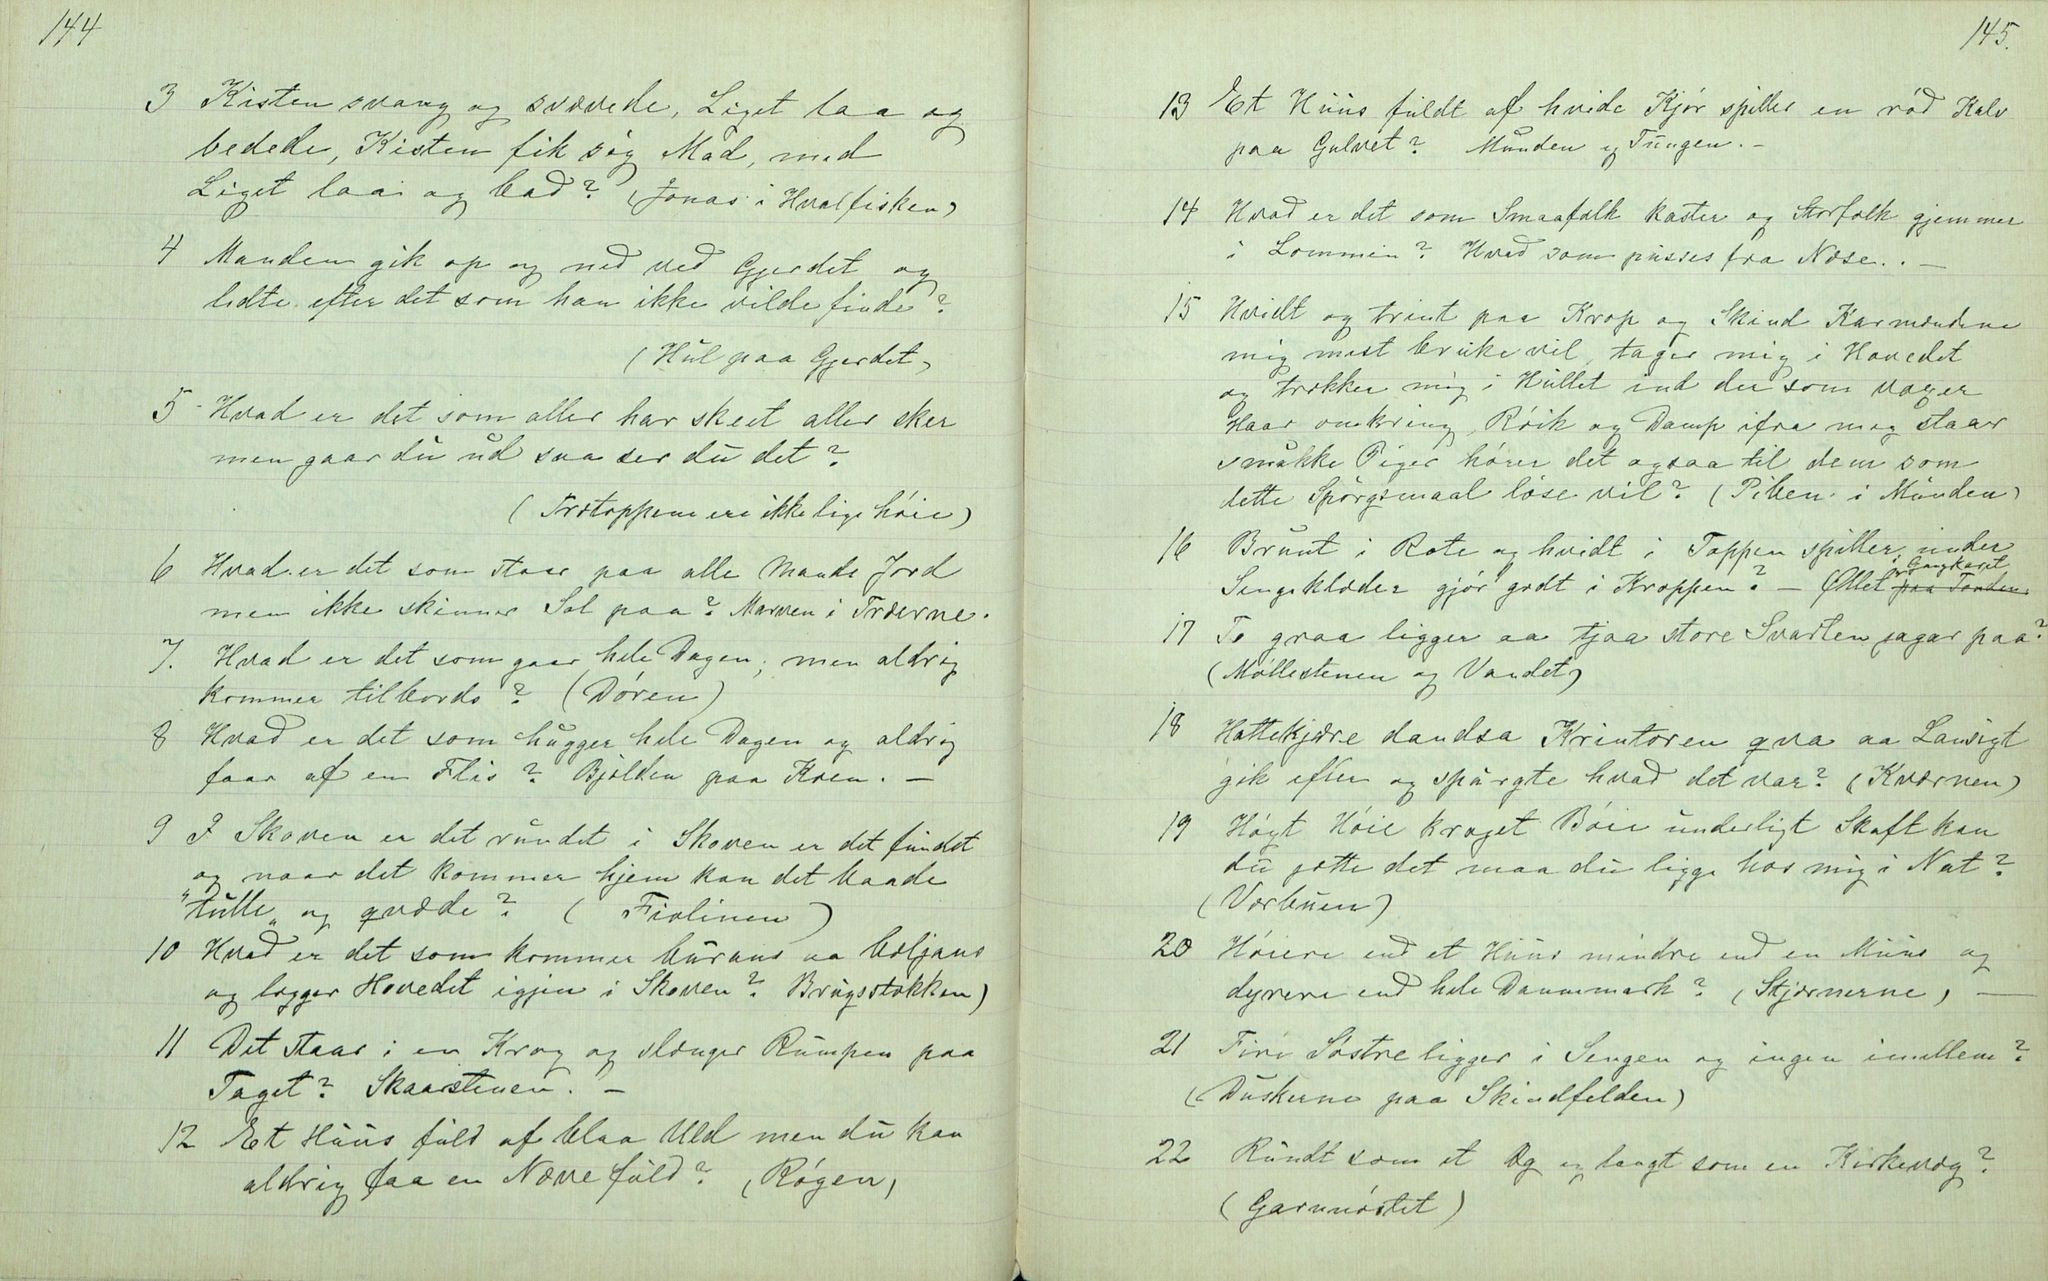 144
3 Kisten svang og svævede, Liget laa og
bedede, Kisten fik sig Mad, med
Liget laa og bad? (Jonas i Hvalfisken)
4 Manden gik op og ned ved Gjerdet og
ledte efter det som han ikke vilde finde?
(Hul paa Gjerdet)
5 Hvad er det som aller har skeet aller sker
men gaar du ud saa ser du det?
(Trætoppene ere ikke lige høie)
6 Hvad er det som staar paa alle Mands Jord
men ikke skinner Sol paa? Marven i Træerne.
7. Hvad er det som gaar hele Dagen, men aldrig
kommer tilbords? (Døren)
8 Hvad er det som hugger hele Dagen og aldrig
faar af en Flis? Bjølden paa Koen. —
9 I Skoven er det rundet i Skoven er det fundet
og naar det kommer hjem kan det baade
"tulle" og qvæde? (Fiolinen)
10 Hvad er det som kommer burans aa beljans
og lægger Hovedet igjen i Skoven? Brugsstokken)
11 Det staar i en Krog og slænger Rumpen paa
Taget? Skaarstenen. —
12 Et Huus fuld af blaa Uld men du kan
aldrig faa en Næve fuld? (Røgen)
145.
13 Et Huus fuldt af hvide Kjør spiller en rød Kalv
paa Gulvet? Munden og Tungen. —
14 Hvad er det som Smaafolk kaster og Storfolk gjemmer
i Lommen? Hvad som pusses fra Næse. . —
15 Hvidt og trint paa Krop og Skind Karmændene
mig mest bruke vil, tager mig i Hovedet
og trækker mig i Hullet ind der som voxer
Haar omkring, Røik og Damp ifra meg staar
smukke Piger hører det ogsaa til dem som
dette Spørgsmaal løse vil? (Piben i Munden)
16 Brunt i Rote og hvidt i Toppen spiller under
Sengeklæder gjør godt i Kroppen? — Øllet paa Tønden
i Gangkaret
17 To graa ligger aa tjaa store Svarten jagar paa?
(Møllestenen og Vandet)
18 Hattekjære dandsa Krintoren qva aa
gik efter og spurgte hvad det var? (Kværnen)
19 Høgt Høie kroget Bøie underligt Skaft kan
du jætte det maa du ligge hos mig i Nat?
(Vorbuen)
20 Høiere end et Huus mindre end en Muus og
dyrere end hele Dannemark? (Stjærnerne) —
21 Fire Søstre ligger i Sengen og ingen imellem?
(Duskerne paa Skindfelden)
22 Rundt som et Æg og langt som en Kirkevæg?
(Garnnøstet)